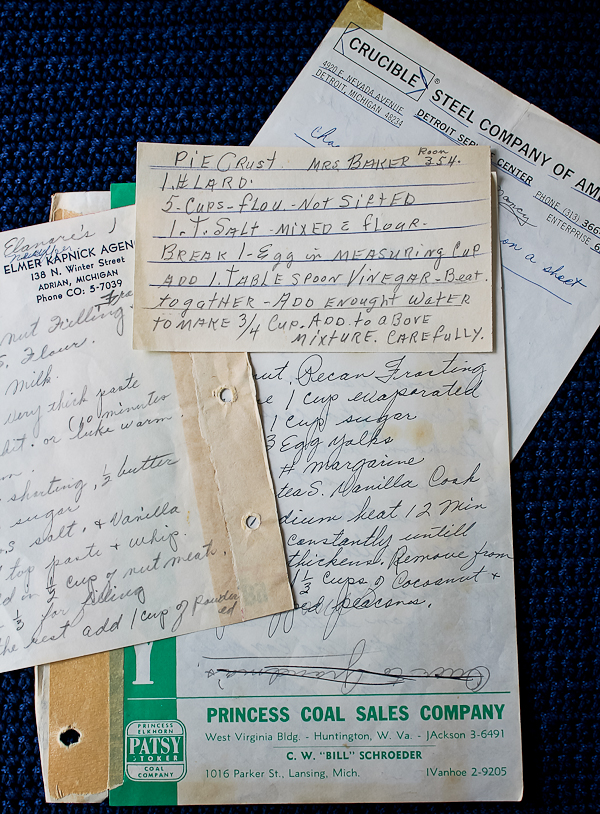 CRUCIBLE ® STEEL COMPANY OF AM
4920 E. NEVADA AVENUE
DETROIT, MICHIGAN 48234
DETROIT SER CENTER
PHONE (313) 366
ENTERPRISE 6
Cha
on a sheet
PiE CRUST. MRS BAKER Room 354.
1.# LARD.
5-Cups-flou-Not Sifted
1-T. SALT-MIXED & flour-
BREAK 1-Egg in MEASURING Cup
ADD 1. TABLESPOON VINEGAR-Beat.
togather-ADD ENOUGHT WATER
TO MAKE 3/4 Cup. ADD to ABOVE
MIXTURE. CAREFULLY.
Elanore's
ELMER KAPNICK AGEN
138 N. Winter Street
ADRIAN, MICHIGAN
Phone CO: 5-7039
nut Filling
S. Flour.
Milk.
very thick paste
10 minutes
or luke warm.
shorting, 1/2 butter
sugar
salt, & Vanilla
top paste & whip.
1/2 cup of nut meat.
1/3 for filling
the rest add 1 cup of powdered
ut. Pecan Frosting
1 cup evaporated
1 cup sugar
3 Egg yolks
# margarine
teas. Vanilla Cook
dium heat 12 Min
constantly untill
thickens. Remove from
1 1/3 cups of Cocoanut +
ped peacons.
Y
PRINCESS ELKHORN
PATSY
STOKER
COAL COMPANY
PRINCESS COAL SALES COMPANY
West Virginia Bldg. - Huntington, W. Va. - JAckson 3-6491
C. W. "BILL" SCHROEDER
1016 Parker St., Lansing, Mich. IVanhoe 2-9205